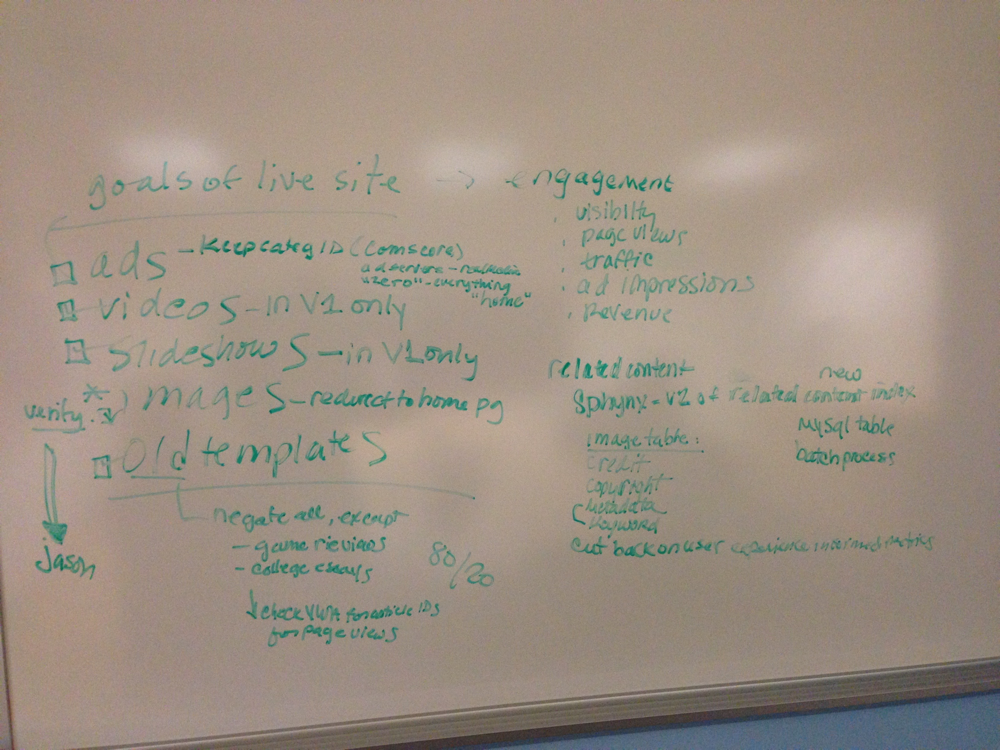 goals of live site → engagement
. visibilty
. page views
. traffic
. ad impressions
. Revenue
ads - Keep categ ID (Comscore)
"zero" - everything
"home"
videos - in V1 only
slideshows - in V1 only
* images - redirect to home pg
verify
old templates
jason
negate all, except
- game reviews
- college essays
80/20
↓ check for article IDs
for page views
related content
new
Sphynx - V1 of related content index
MySql table
batch process
image table:
credit
copyright
metadata
keyword
cut back on user experience intermed metrics